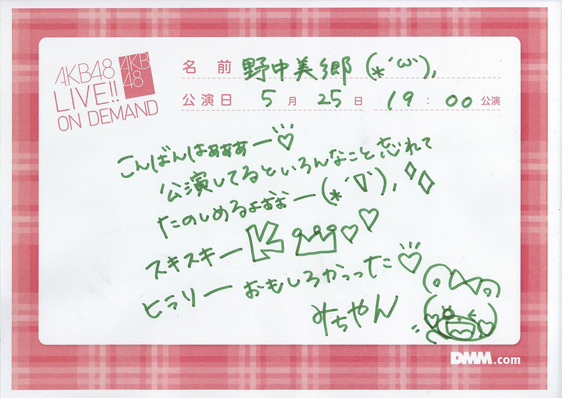 AKB48
LIVE!!
ON DEMAND
AKB
48
名 前 野中美郷 (*´ω`),
公演日 5 月 25 日 19 : 00 公演
こんばんはぁぁぁー♡
公演してるといろんなこと忘れて
たのしめるよぉぉー(*´∇`),
スキスキー K ♡♡
ヒラリー おもしろかった♡
みちゃん
DMM.com